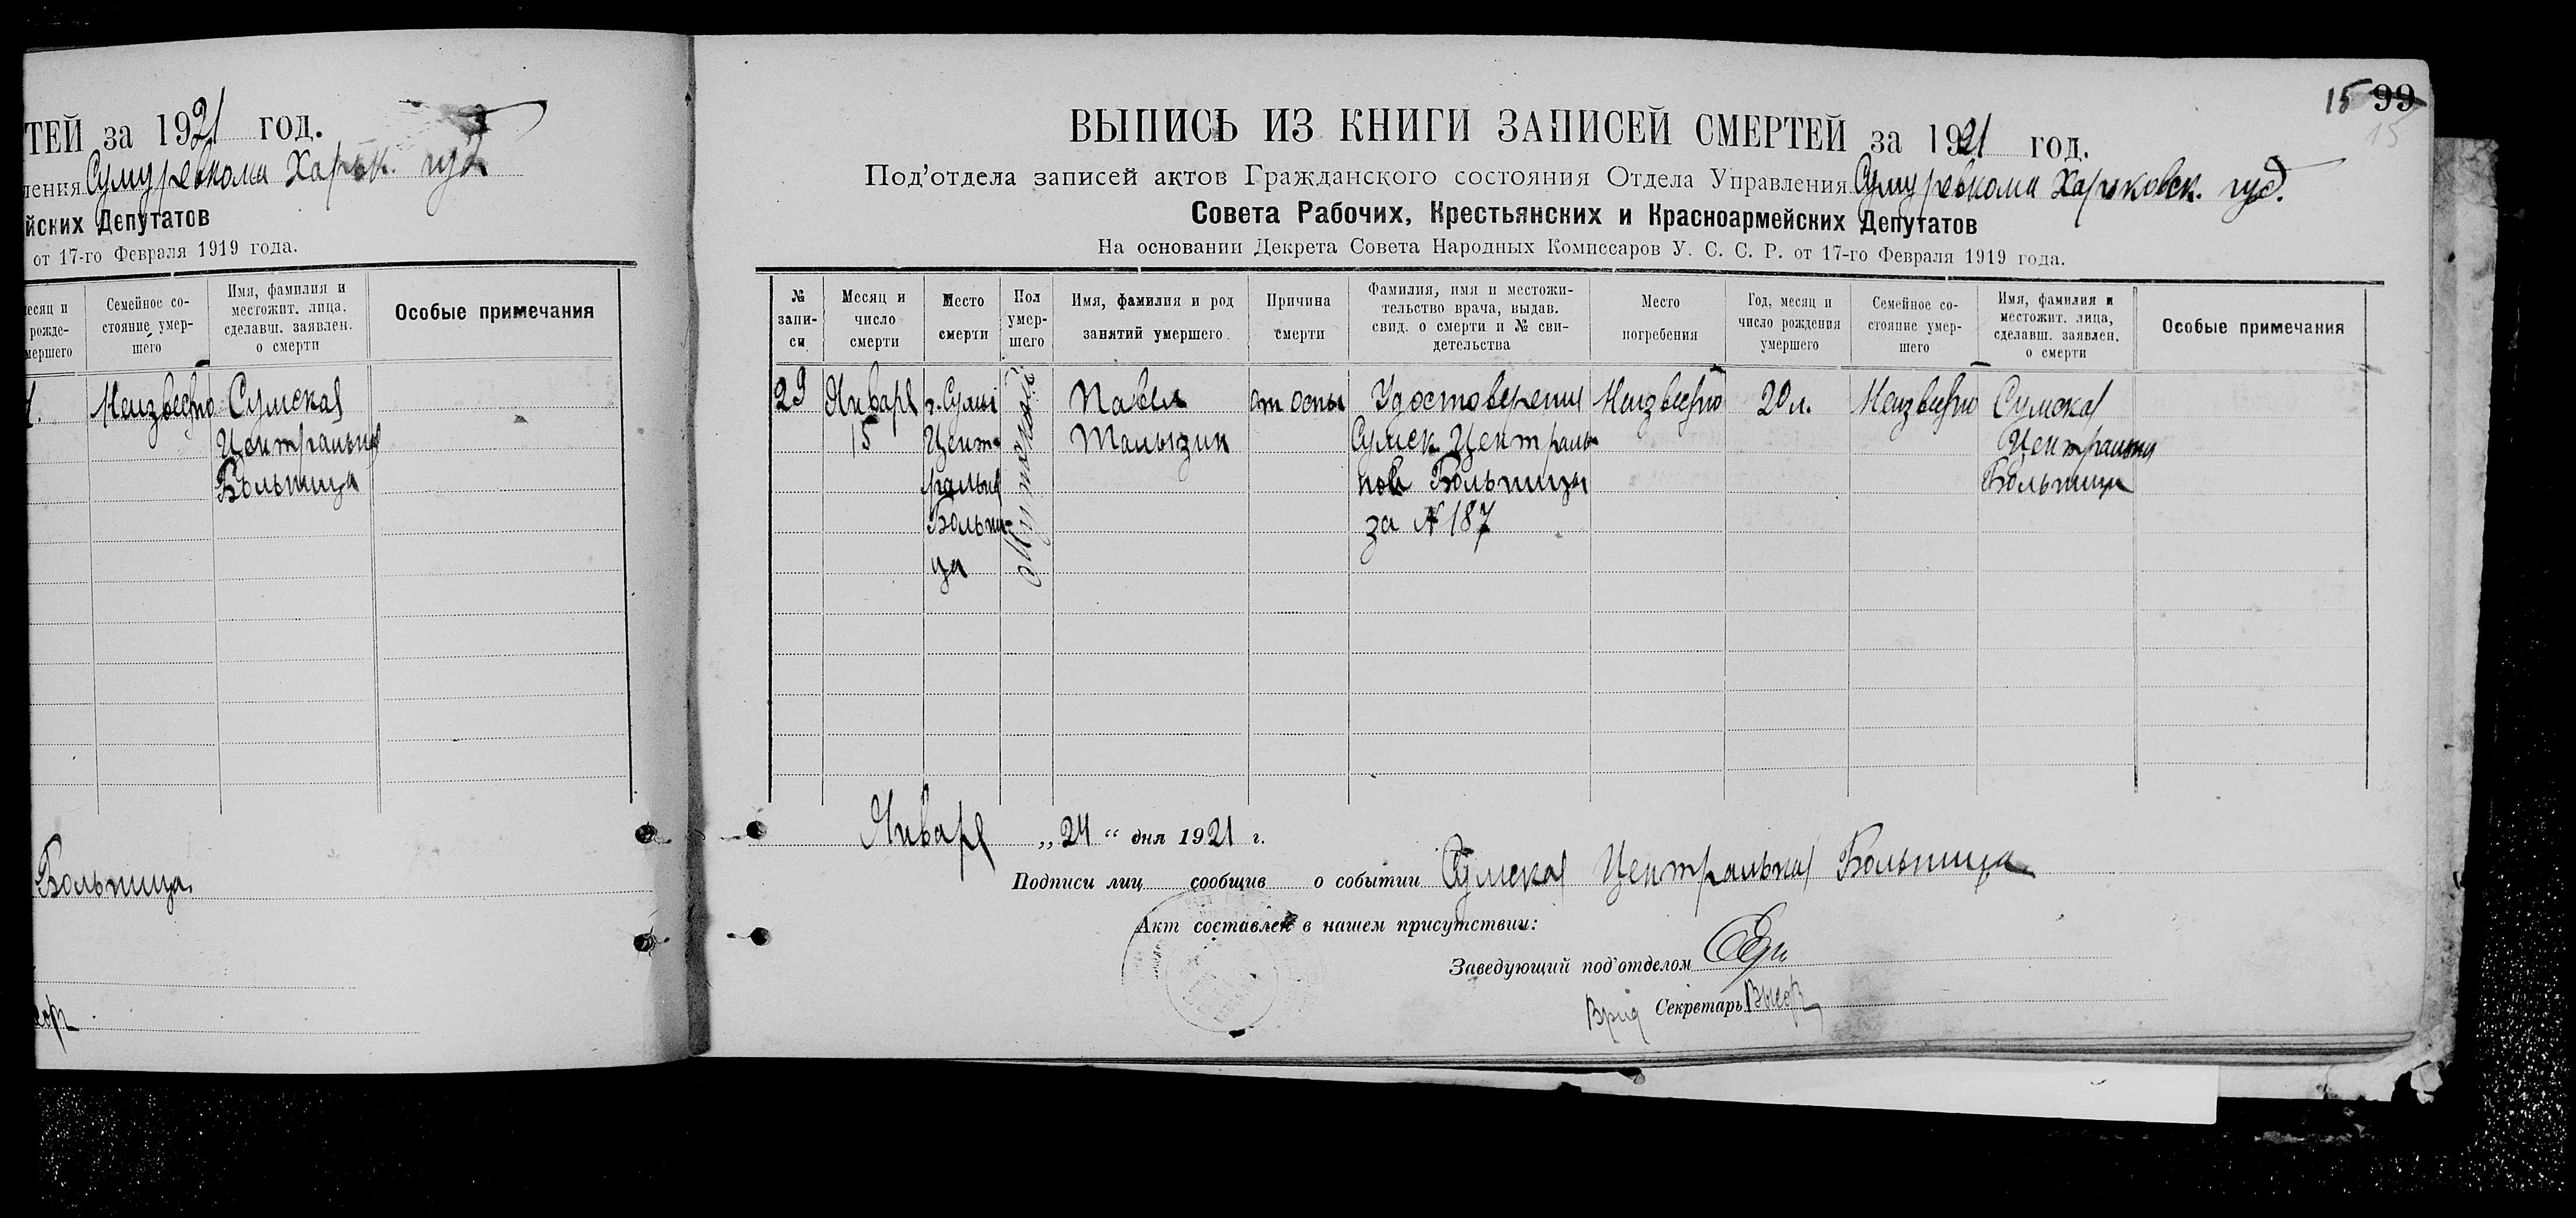 ТЕЙ за 1921 год.
ления Сумуревкома Харьк. губ
йских Депутатов
от 17-го Февраля 1919 года.
есяц и
рожде-
мершего
Семейное со-
стояние умер-
шего
Имя, фамилия и
местожит. лица,
сделавш. заявлен.
о смерти
Особые примечания
Неизвестно
Сумская
Центральная
Больница
Больница
15 99
15
ВЫПИСЬ ИЗ КНИГИ ЗАПИСЕЙ СМЕРТЕЙ за 1921 год.
Под'отдела записей актов Гражданского состояния Отдела Управления Сумуревкома Харьковск. губ.
Совета Рабочих, Крестьянских и Красноармейских Депутатов
На основании Декрета Совета Народных Комиссаров У. С. С. Р. от 17-го Февраля 1919 года.
№
запи-
си
Месяц и
число
смерти
Место
смерти
Пол
умер-
шего
Имя, фамилия и род
занятий умершего
Причина
смерти
Фамилия, имя и местожи-
тельство врача, выдав.
свид. о смерти и № сви-
детельства
Место
погребения
Год, месяц и
число рождения
умершего
Семейное со-
стояние умер-
шего
Имя, фамилия и
местожит. лица,
сделавш. заявлен.
о смерти
Особые примечания
29
Января
15
г. Сумы
Цент-
ральная
Больни-
ца
Мужской
Павел
Малызин
от оспы
Удостоверения
Сумск. Централь
ной Больницы
за № 187
Неизвестно
20 л.
Неизвестно
Сумская
Центральная
Больница
Января „24“ дня 1921 г.
Подписи лиц сообщив о событии Сумская Центральная Больница
Акт составлен в нашем присутствии:
Заведующий под'отделом
Врид Секретарь